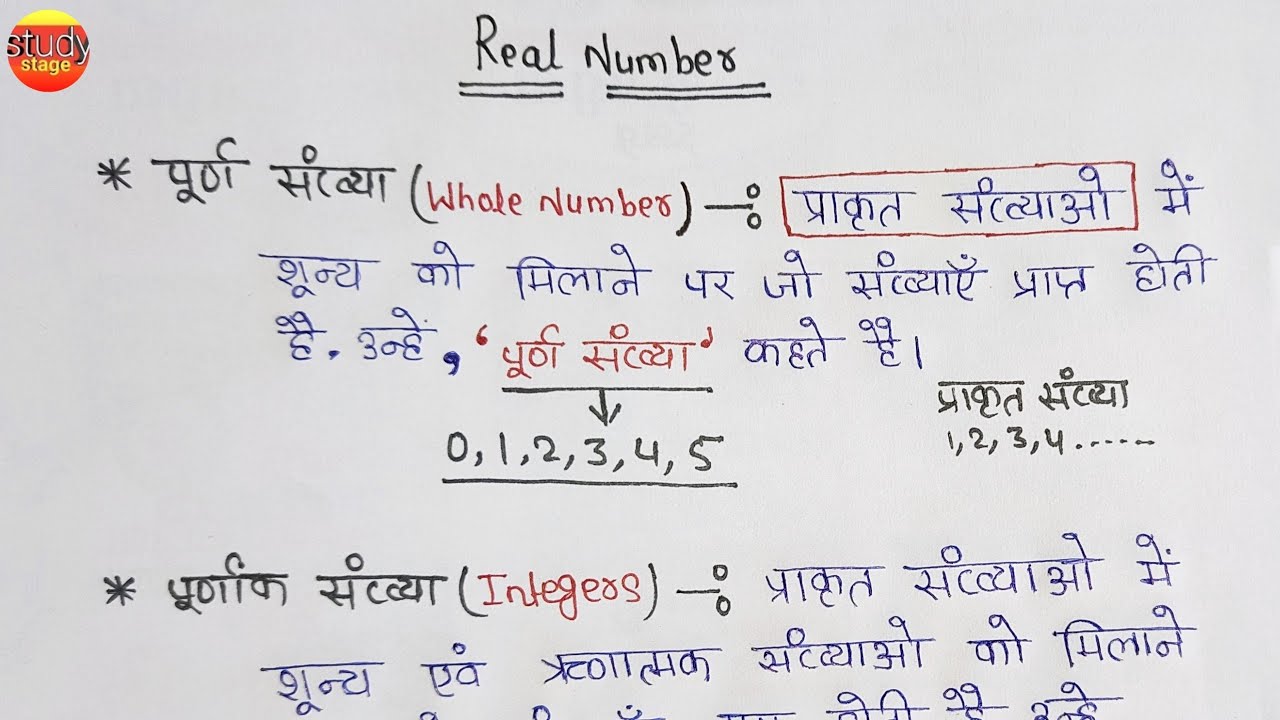 study
stage
Real Number
* पूर्ण संख्या (Whole Number) —: प्राकृत संख्याओ में
शून्य को मिलाने पर जो संख्याएँ प्राप्त होती
है. उन्हें, ‘पूर्ण संख्या’ कहते है।
प्राकृत संख्या
1, 2, 3, 4 ......
0, 1, 2, 3, 4, 5
* पूर्णांक संख्या (Integers) —: प्राकृत संख्याओ में
शून्य एवं ऋणात्मक संख्याओ को मिलाने
होती है उन्हे